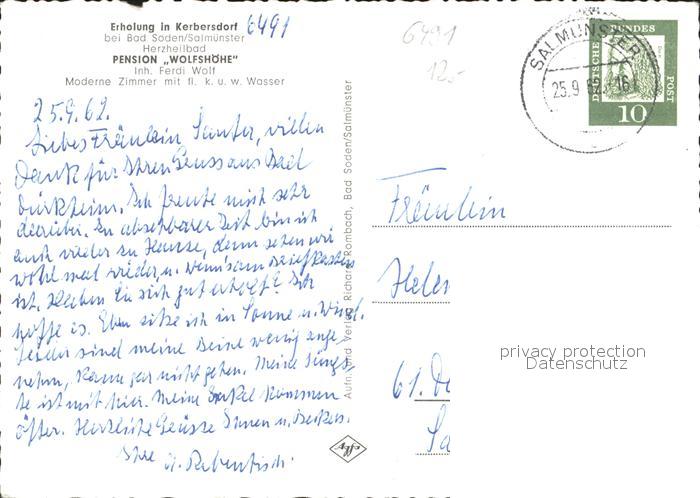 Erholung in Kerbersdorf
bei Bad Soden/Salmünster
Herzheilbad
PENSION „WOLFSHÖHE"
Inh. Ferdi Wolf
Moderne Zimmer mit fl. k. u. w. Wasser
6491
6491
12,-
SALMÜNSTER
25.9.62-16
DEUTSCHE BUNDES POST
10
25.9.62.
Liebes Fräulein Santer, vielen
Dank für Ihren Gruss aus Bad
Dürkheim. Ich freute mich sehr
darüber. In absehbarer Zeit bin ich
auch wieder zu Hause, dann sehen wir
wohl mal wieder, u. wenn's am Briefkasten
ist. Haben Sie sich gut erholt? Ich
hoffe es. Eben sitze ich in Sonne u. Wind.
Leider sind meine Beine wenig ange-
nehm, kann gar nicht gehen. Meine Jüngs-
te ist mit hier. Meine Enkel kommen
öfter. Herzliche Grüsse Ihnen u.
Ihre
Aufn. und Verlag Richard Rombach, Bad Soden/Salmünster
Agfa
Fräulein
Helen
61. Da
Sa
privacy protection
Datenschutz